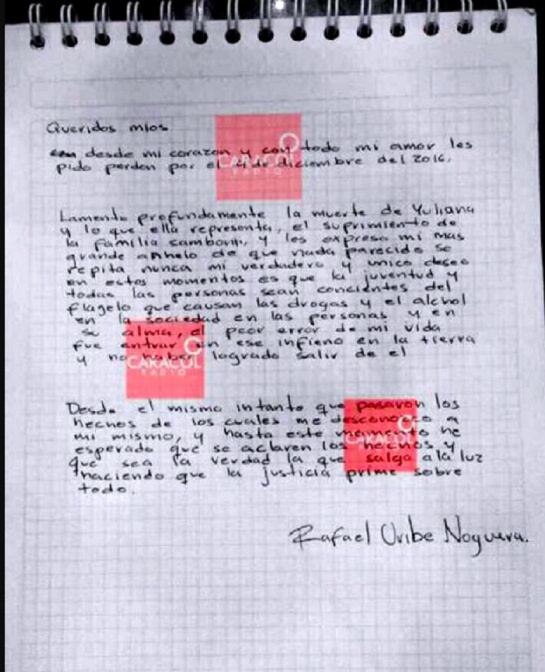 Queridos mios
desde mi corazon y con todo mi amor les
pido perdon por el 4 de diciembre del 2016.
Lamento profundamente la muerte de Yuliana
y lo que ella representa, el suprimiento de
la familia samboni, y les expreso mi mas
grande anhelo de que nada parecido se
repita nunca mi verdadero y unico deseo
en estos momentos es que la juventud y
todas las personas sean concientes del
flagelo que causan las drogas y el alchol
en la sociedad en las personas y en
su alma, el peor error de mi vida
fue entrar en ese infieno en la tierra
y no haber logrado salir de el
Desde el mismo intante que pasaron los
hechos de los cuales me desconozco a
mi mismo, y hasta este momento he
esperado que se aclaren los hechos y
que sea la verdad la que salga a la luz
haciendo que la justicia prime sobre
todo.
Rafael Uribe Noguera.
CARACOL
RADIO
CARACOL
RADIO
CARACOL